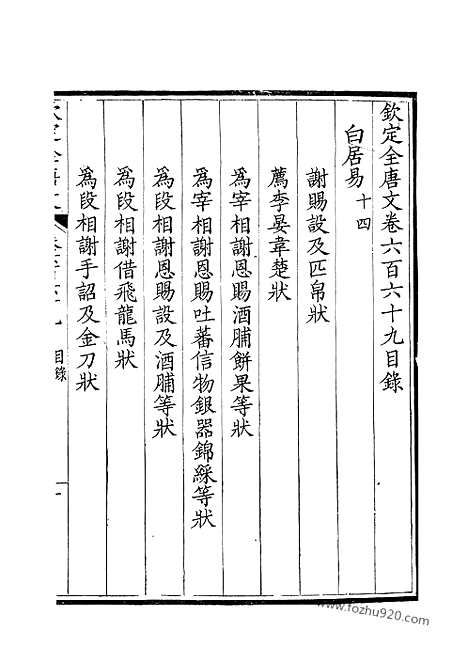 欽定全唐文卷六百六十九目錄
白居易十四
謝賜設及匹帛狀
薦李晏韋楚狀
為宰相謝恩賜酒脯餅果等狀
為宰相謝恩賜吐蕃信物銀器錦綵等狀
為段相謝恩賜設及酒脯等狀
為段相謝借飛龍馬狀
為段相謝手詔及金刀狀
目錄
一
www.fozhu920.com